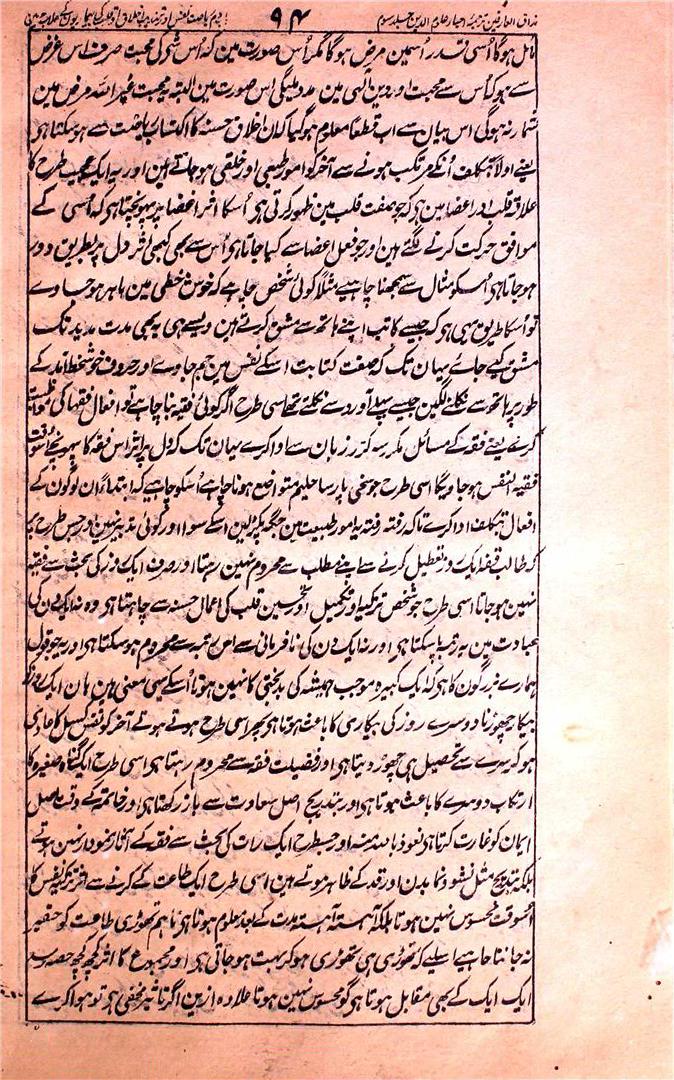 مذاق العارفین ترجمہ احیاء علوم الدین جلد سوم ۹۴
مائل ہوگا اُسی قدر اُسمین مرض ہوگا مگر اُس صورت مین کہ اُس شی کی محبت صرف اس غرض
سے ہو کہ اُس سے محبت اور دین الٰہی مین مدد ملیگی اس صورت مین البتہ یہ محبت غیر اللہ مرض مین
شمار نہ ہوگی اس بیان سے اب قطعًا معلوم ہوگیا کہ ان اخلاق حسنہ کا اکتساب ریاضت سے ہو سکتا ہی
یعنے اولًا بتکلف اُنکے مرتکب ہونے سے آخر کو امور طبعی اور خلقی ہو جاتے ہین اور یہ ایک عجیب طرح کا
علاقہ قلب اور اعضا مین ہی کہ جو صفت قلب مین ظہور کرتی ہی اُسکا اثر اعضا پر پہونچتا ہی کہ اُسی کے
موافق حرکت کرنے لگتے ہین اور جو فعل اعضا سے کیا جاتا ہی اُس سے بھی کبھی اثر دل پر بطریق دور
ہو جاتا ہی اُسکو مثال سے سمجھنا چاہیے مثلًا کوئی شخص چاہے کہ خوش خطی مین ماہر ہو جاوے
تو اُسکا طریق یہی ہی کہ جیسے کاتب اپنے ہاتھ سے مشق کرتے ہین ویسے ہی یہ بھی مدت مدید تک
مشق کیے جائے یہان تک کہ صفت کتابت اسکے نفس مین جم جاوے اور حروف خوشخط آمد کے
طور پر ہاتھ سے نکلنے لگین جیسے پہلے آورد سے نکلتے تھے اسی طرح اگر کوئی فقیہ بننا چاہے تو افعال فقہا کی مواظبت
کرے یعنے فقہ کے مسائل مکرر سہ کرر زبان سے ادا کرے یہان تک کہ دل پر اثر اس فقہ کا پہونچے اُسوقت
فقیہ النفس ہو جاویگا اسی طرح جو سخی پارسا حلیم متواضع ہونا چاہے اُسکو چاہیے کہ ابتداءً ان لوگون کے
افعال بتکلف ادا کرے تاکہ رفتہ رفتہ یہ امور طبیعت مین جگہ پکڑ لین اسکے سوا اور کوئی تدبیر نہین اور جس طرح پر
کہ طالب فقہ ایک روز تعطیل کرنے سے اپنے مطلب سے محروم نہین رہتا اور صرف ایک روز کی بحث سے فقیہ
نہین ہو جاتا اسی طرح جو شخص تزکیہ اور تکمیل اور تحسین قلب کی اعمال حسنہ سے چاہتا ہی وہ نہ ایک دن کی
عبادت مین یہ رتبہ پا سکتا ہی اور نہ ایک دن کی نافرمانی سے اس رتبہ سے محروم ہو سکتا ہی اور یہ جو قول
ہمارے بزرگون کا ہی کہ ایک کبیرہ موجب ہمیشہ کی بدبختی کا نہین ہوتا اُسکے یہی معنی ہین ہان ایک روز کا
بیکار چھوڑنا دوسرے روز کی بیکاری کا باعث ہوتا ہی پھر اسی طرح ہوتے ہوتے آخر کو نفس کسل کا عادی
ہو کر سرے سے تحصیل ہی چھوڑ دیتا ہی اور فضیلت فقہ سے محروم رہتا ہی اسی طرح ایک گناہ صغیرہ کا
ارتکاب دوسرے کا باعث ہوتا ہی اور بتدریج اصل سعادت سے باز رکھتا ہی اور خاتمہ کے وقت اصل
ایمان کو غارت کرتا ہی نعوذ باللہ منہ اور جسطرح ایک رات کی بحث سے فقہ کے آثار نمودار نہین ہوتے
بلکہ بتدریج مثل نشو و نما بدن اور قد کے ظاہر ہوتے ہین اسی طرح ایک طاعت کے کرنے سے اثر تزکیہ نفس کا
اُسوقت محسوس نہین ہوتا بلکہ آہستہ آہستہ مدت کے بعد معلوم ہوتا ہی تاہم تھوڑی طاعت کو حقیر
نہ جاننا چاہیے اسلیے کہ تھوڑی ہی تھوڑی ہو کر بہت ہو جاتی ہی اور مجموع کا اثر کچھ کچھ حصہ رسد
ایک ایک کے بھی مقابل ہوتا ہی گو محسوس نہین ہوتا علاوہ ازین اگر تاثیر مخفی ہی تو ہوا کرے